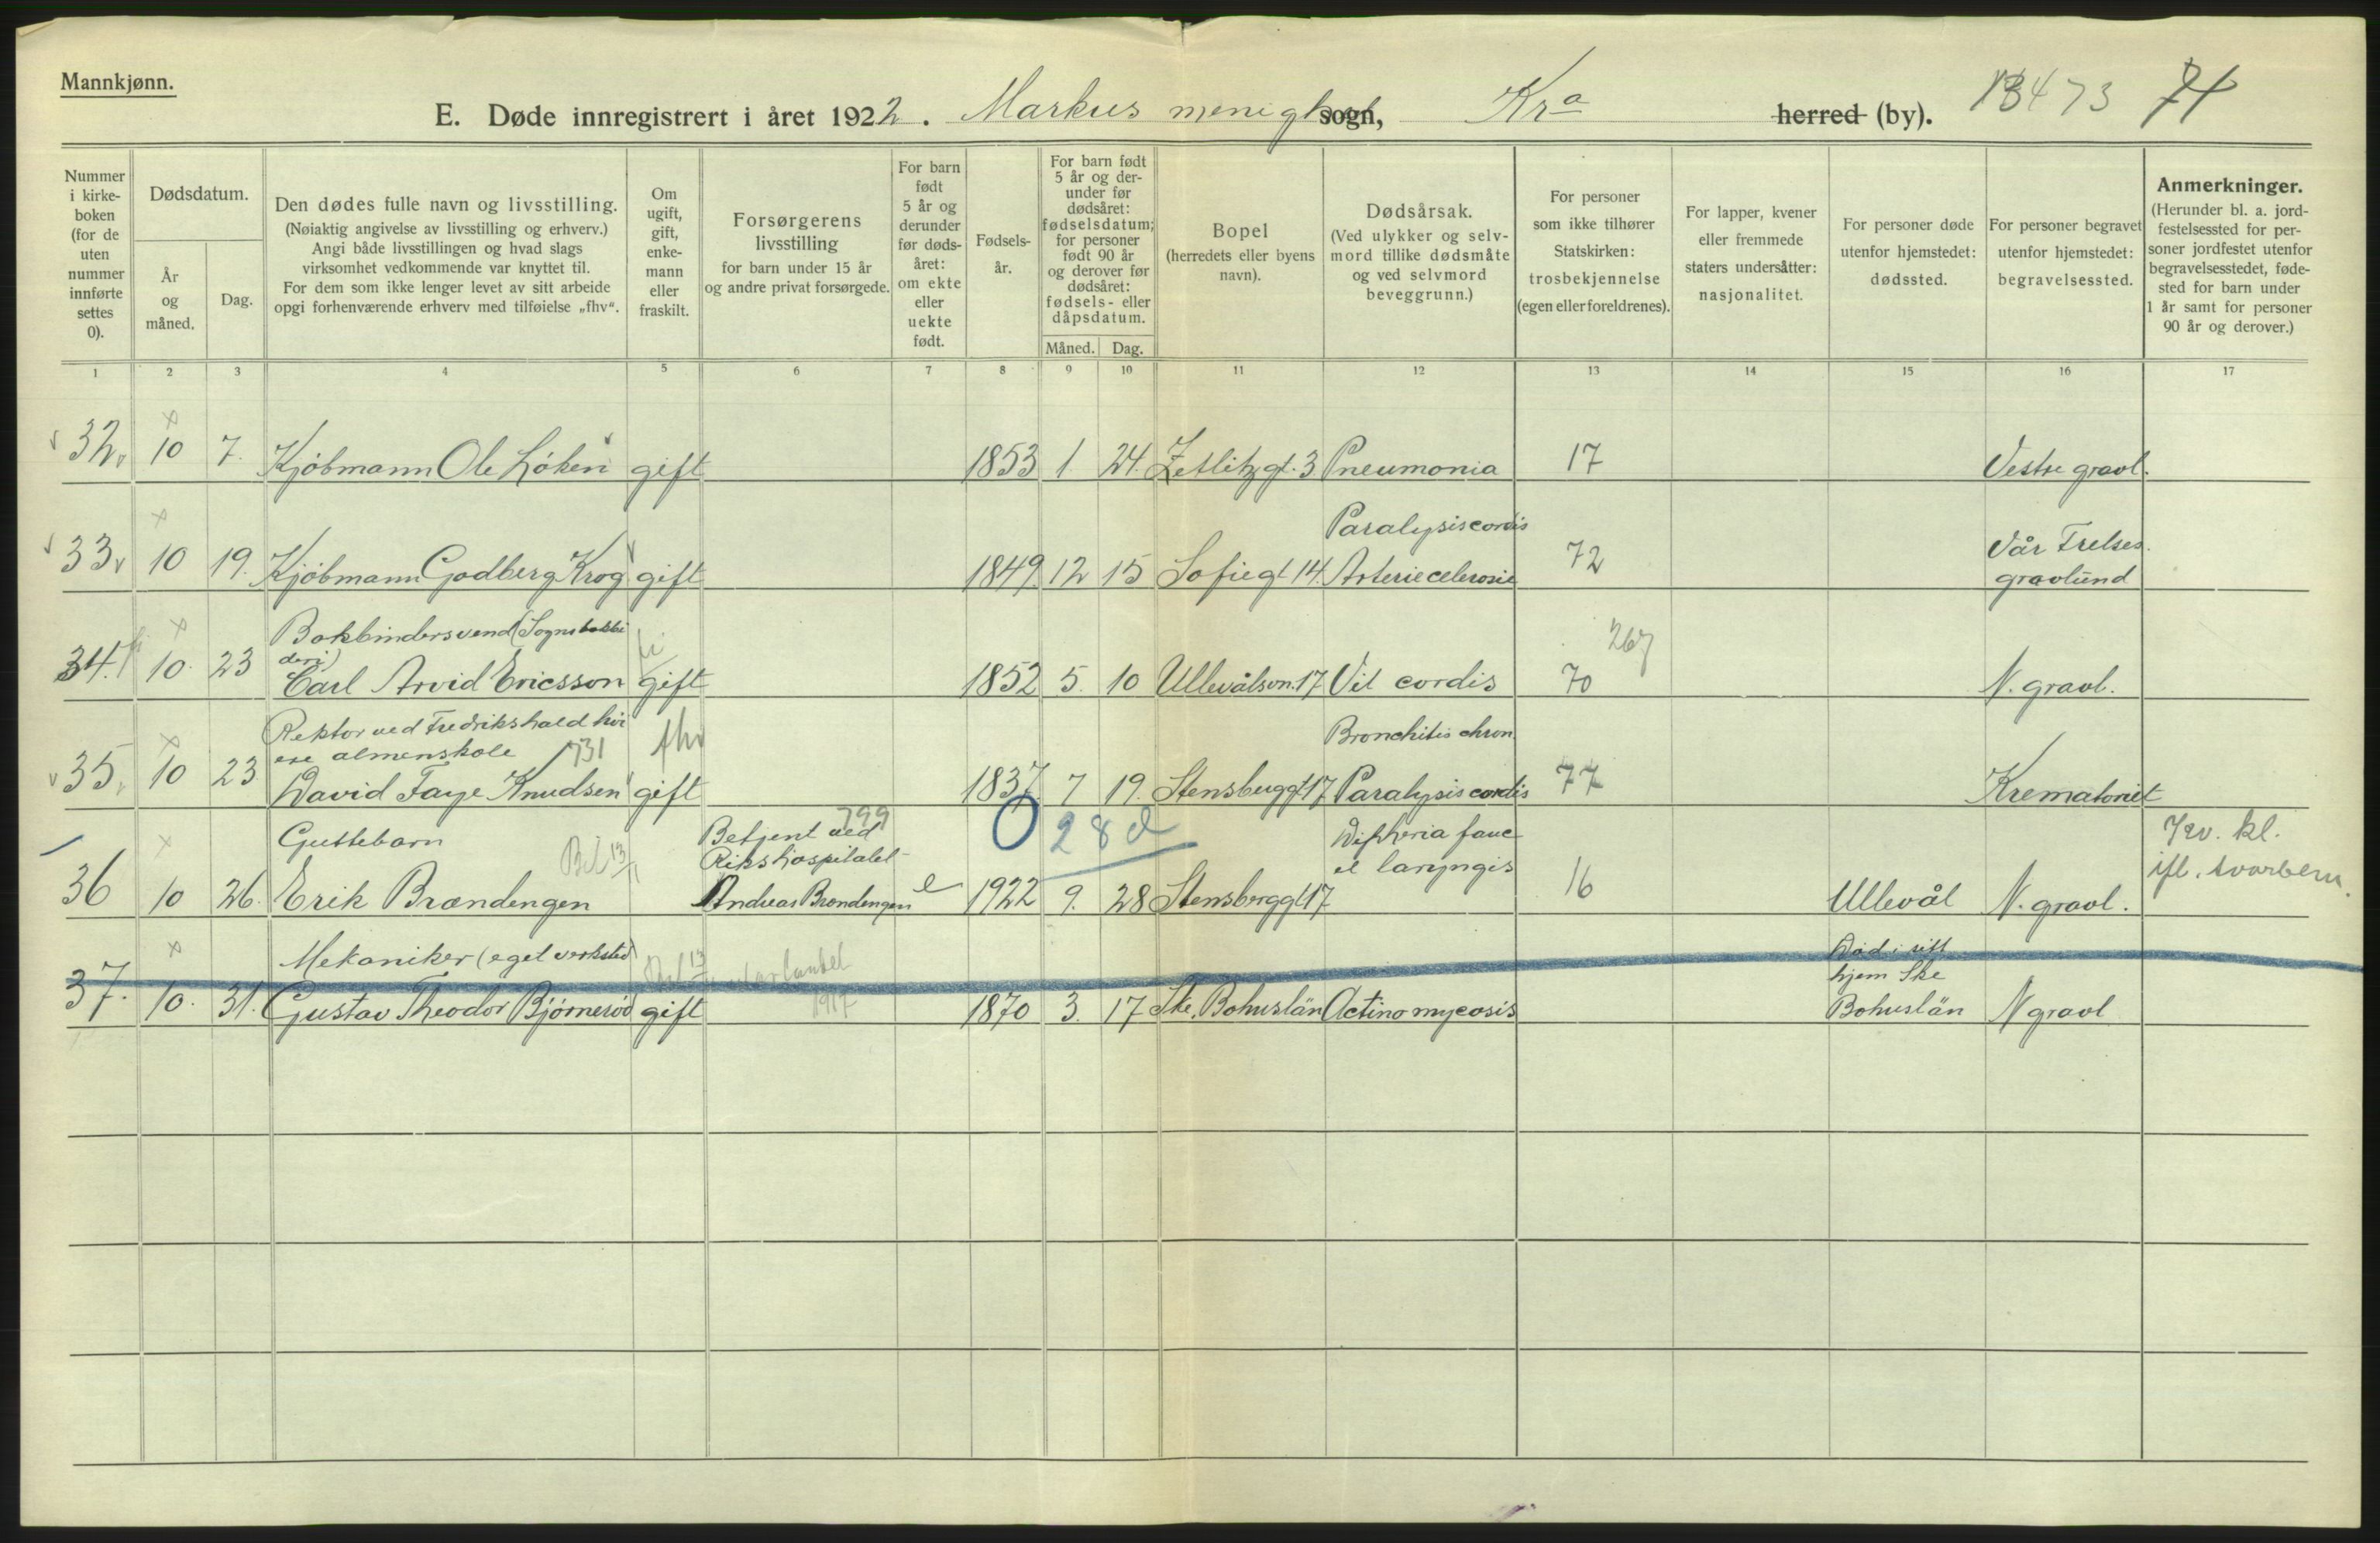 Mannkjønn.
E. Døde innregistrert i året 1922. Markus menighet sogn, Kra herred (by). 13473 74
Nummer i kirkeboken (for de uten nummer innførte settes 0).
Dødsdatum.
År og måned.
Dag.
Den dødes fulle navn og livsstilling.
(Nøiaktig angivelse av livsstilling og erhverv.)
Angi både livsstillingen og hvad slags
virksomhet vedkommende var knyttet til.
For dem som ikke lenger levet av sitt arbeide
opgi forhenværende erhverv med tilføielse „fhv“.
Om ugift, gift, enkemann eller fraskilt.
Forsørgerens
livsstilling
for barn under 15 år
og andre privat forsørgede.
For barn født 5 år og derunder før dødsåret: om ekte eller uekte født.
Fødselsår.
For barn født 5 år og derunder før dødsåret: fødselsdatum; for personer født 90 år og derover før dødsåret: fødsels- eller dåpsdatum.
Måned. Dag.
Bopel
(herredets eller byens navn).
Dødsårsak.
(Ved ulykker og selvmord tillike dødsmåte og ved selvmord beveggrunn.)
For personer som ikke tilhører Statskirken: trosbekjennelse (egen eller foreldrenes).
For lapper, kvener eller fremmede staters undersåtter: nasjonalitet.
For personer døde utenfor hjemstedet: dødssted.
For personer begravet utenfor hjemstedet: begravelsessted.
Anmerkninger.
(Herunder bl. a. jordfestelsessted for personer jordfestet utenfor begravelsesstedet, fødested for barn under 1 år samt for personer 90 år og derover.)
1 2 3 4 5 6 7 8 9 10 11 12 13 14 15 16 17
32 10 7. Kjøbmann Ole Løken gift 1853 1 24. Zetlitzgt. 3 Pneumonia 17 Vestre gravl.
Paralysis cordis
33 10 19. Kjøbmann Godberg Krog gift 1849. 12 15 Sofiegt 14. Arteriecelerosie 72 Vår Frelses gravlund
Bokbindersvend (Sogns bokbi
deri)
34. 10. 23 Carl Arvid Ericsson gift 1852 5. 10 Ullevålsvn. 17 Vit cordis 70 267 N. gravl.
Rektor ved Fredrikshald høi
ere almenskole 731 fhv Bronchitis chron.
35. 10 23 David Faye Knudsen gift 1837. 7 19. Stensberggt 17 Paralysis cordis 77 Krematoriet
Guttebarn Betjent ved 799 0 28 d Difheria fauc 7ev. kl.
Rikshospitalet et laryngis
36 10 26. Erik Brændengen Andreas Brændengen e 1922 9. 28 Stensberggt 17 16 Ullevål N. gravl.
Mekaniker (eget verksted) 1917 Død i sitt
hjem Ske
37. 10. 31. Gustav Theodor Bjørnerød gift 1870 3. 17 Ske, Bohuslän Actinomycosis Bohuslän N gravl